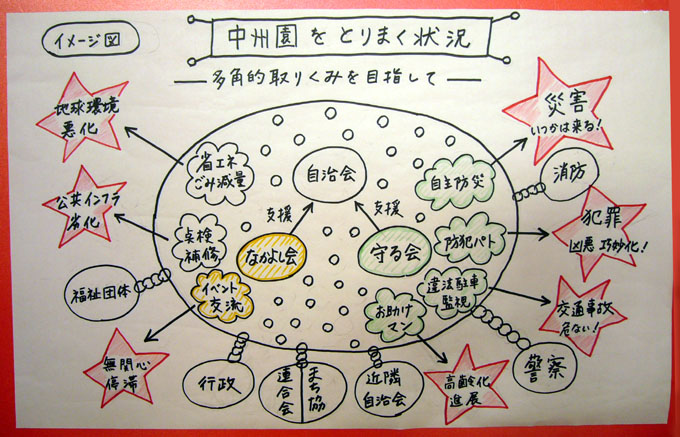 イメージ図
中州園をとりまく状況
多角的取りくみを目指して
地球環境
悪化
省エネ
ごみ減量
自治会
自主防災
災害
いつかは来る!
消防
公共インフラ
劣化
点検
補修
支援
支援
なかよし会
守る会
防犯パト
犯罪
凶悪 巧妙化!
福祉団体
イベント
交流
お助け
マン
違法駐車
監視
交通事故
危ない!
無関心
停滞
行政
連合会
まち協
近隣
自治会
高齢化
進展
警察